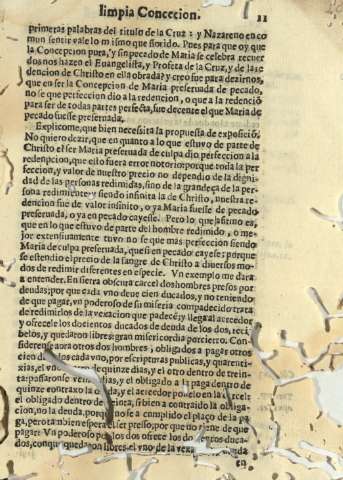 limpia Concecion. 11
primeras palabras del titulo de la Cruz: y Nazareno en co
mun sentir vale lo mismo que florido. Pues para que oy que
la Concepcion pura, y sin pecado de Maria se celebra recuer
dos nos hazen el Euangelista, y Profeta de la Cruz, y de la re
dencion de Christo en ella obrada? y creo fue para dezirnos,
que en ser la Concepcion de Maria preseruada de pecado,
no se que perfeccion dio a la redencion, o que a la redenciõ
para ser de todas partes perfecta, fue decente el que Maria de
pecado fuesse preseruada.
Explicome, que bien necessita la propuesta de exposiciõ.
No quiero dezir, que en quanto a lo que estuvo de parte de
Christo el ser Maria preseruada de culpa dio perfeccion a la
redempcion, que ello fuera error notorio: porque toda la per
feccion, y valor de nuestro precio no dependio de la digni
dad de las personas redimidas, sino de la grandeça de la per
sona redimiente: y siendo infinita la de Christo, nuestra re
dencion fue de valor infinito, o ya Maria fuesse de pecado
preseruada, o ya en pecado cayesse. Pero lo que afirmo es,
que en lo que estuvo de parte del hombre redimido, o me-
jor extensiuamente tuvo no se que mas perfeccion siendo
Maria de culpa preseruada, que si en pecado cayesse: porque
se estendio el precio de la sangre de Christo a diuersos mo-
dos de redimir diferentes en especie. Vn exemplo me dara
a entender. En fiera obscura carcel dos hombres presos por
deudas; por que cada vno deue cien ducados, y no teniendo
de que pagar, vn poderoso de su miseria compadecido trata
de redimirlos de la vexacion que padecẽ; y llega al acreedor
y ofrecele los docientos ducados de deuda de los dos, reci
belos, y quedaron libres: gran misericordia por cierto. Con-
siderense aora otros dos hombres, obligados a pagar otros
cien ducados cada vno, por escripturas publicas, y quarenti-
xias, el vno dentro de quinze dias, y el otro dentro de trein-
ta: passaronse veinte dias, y el obligado a la paga dentro de
quinze contraxo la deuda, y el acreedor ponelo en la carcel:
el obligado dentro de treinta, si bien a contraido la obliga-
cion, no la deuda, porque no se a cumplido el plaço de la pa
ga, pero tambien espera el ser presso, por que no tiene de que
pagar: Vn poderoso por los dos ofrece los docientos duca-
dos, con que quedaron libres, el vno de la vexa
en